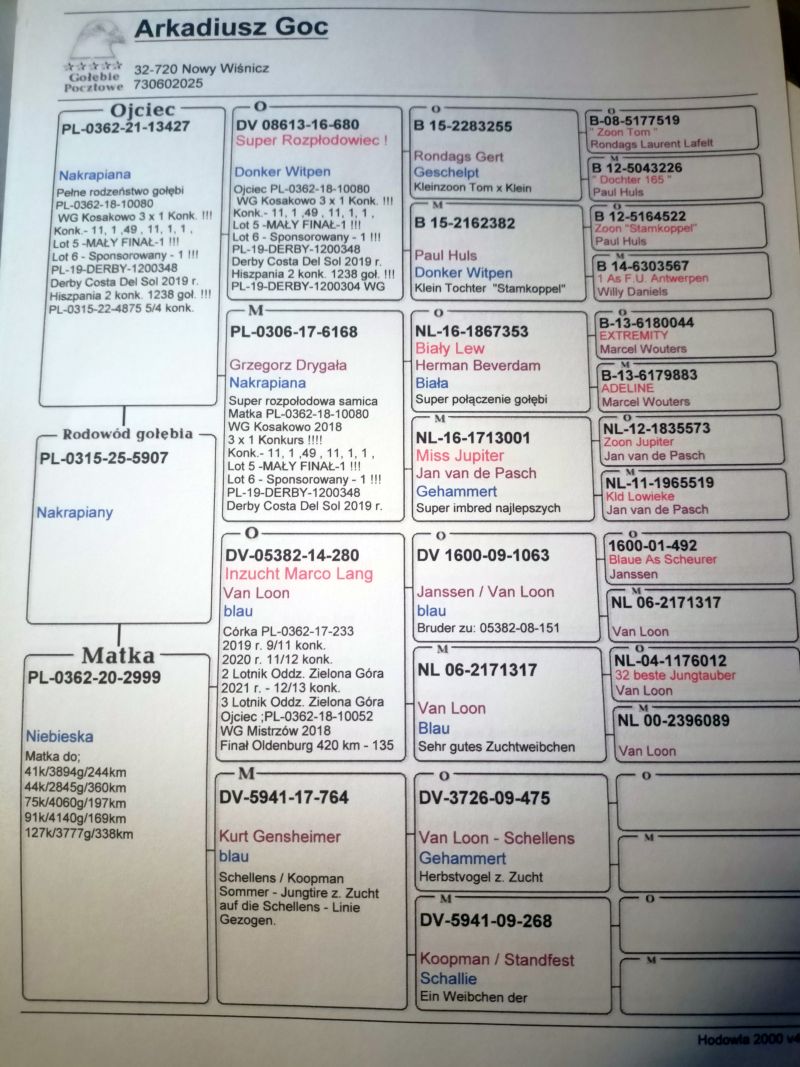 Arkadiusz Goc
Gołębie
Pocztowe
32-720 Nowy Wiśnicz
730602025
Ojciec
PL-0362-21-13427
Nakrapiana
Pełne rodzeństwo gołębi
PL-0362-18-10080
WG Kosakowo 3 x 1 Konk. !!!
Konk.- 11, 1 ,49 , 11, 1, 1 ,
Lot 5 -MAŁY FINAŁ-1 !!!
Lot 6 - Sponsorowany - 1 !!!
PL-19-DERBY-1200348
Derby Costa Del Sol 2019 r.
Hiszpania 2 konk. 1238 goł. !!!
PL-0315-22-4875 5/4 konk.
Rodowód gołębia
PL-0315-25-5907
Nakrapiany
Matka
PL-0362-20-2999
Niebieska
Matka do;
41k/3894g/244km
44k/2845g/360km
75k/4060g/197km
91k/4140g/169km
127k/3777g/338km
O
DV 08613-16-680
Super Rozpłodowiec !
Donker Witpen
Ojciec PL-0362-18-10080
WG Kosakowo 3 x 1 Konk. !!!
Konk.- 11, 1 ,49 , 11, 1, 1 ,
Lot 5 -MAŁY FINAŁ-1 !!!
Lot 6 - Sponsorowany - 1 !!!
PL-19-DERBY-1200348
Derby Costa Del Sol 2019 r.
Hiszpania 2 konk. 1238 goł. !!!
PL-19-DERBY-1200304 WG
M
PL-0306-17-6168
Grzegorz Drygała
Nakrapiana
Super rozpołodowa samica
Matka PL-0362-18-10080
WG Kosakowo 2018
3 x 1 Konkurs !!!!
Konk.- 11, 1 ,49 , 11, 1, 1 ,
Lot 5 -MAŁY FINAŁ-1 !!!
Lot 6 - Sponsorowany - 1 !!!
PL-19-DERBY-1200348
Derby Costa Del Sol 2019 r.
O
DV-05382-14-280
Inzucht Marco Lang
Van Loon
blau
Córka PL-0362-17-233
2019 r. 9/11 konk.
2020 r. 11/12 konk.
2 Lotnik Oddz. Zielona Góra
2021 r. - 12/13 konk.
3 Lotnik Oddz. Zielona Góra
Ojciec ;PL-0362-18-10052
WG Mistrzów 2018
Finał Oldenburg 420 km - 135
M
DV-5941-17-764
Kurt Gensheimer
blau
Schellens / Koopman
Sommer - Jungtire z. Zucht
auf die Schellens - Linie
Gezogen.
O
B 15-2283255
Rondags Gert
Geschelpt
Kleinzoon Tom x Klein
M
B 15-2162382
Paul Huls
Donker Witpen
Klein Tochter "Stamkoppel"
O
NL-16-1867353
Biały Lew
Herman Beverdam
Biała
Super połączenie gołębi
M
NL-16-1713001
Miss Jupiter
Jan van de Pasch
Gehammert
Super imbred najlepszych
O
DV 1600-09-1063
Janssen / Van Loon
blau
Bruder zu: 05382-08-151
M
NL 06-2171317
Van Loon
Blau
Sehr gutes Zuchtweibchen
O
DV-3726-09-475
Van Loon - Schellens
Gehammert
Herbstvogel z. Zucht
M
DV-5941-09-268
Koopman / Standfest
Schallie
Ein Weibchen der
O
B-08-5177519
" Zoon Tom "
Rondags Laurent Lafelt
M
B 12-5043226
" Dochter 165 "
Paul Huls
O
B 12-5164522
Zoon "Stamkoppel"
Paul Huls
M
B 14-6303567
1 As F.U. Antwerpen
Willy Daniels
O
B-13-6180044
EXTREMITY
Marcel Wouters
M
B-13-6179883
ADELINE
Marcel Wouters
O
NL-12-1835573
Zoon Jupiter
Jan van de Pasch
M
NL-11-1965519
Kid Lowieke
Jan van de Pasch
O
1600-01-492
Blaue As Scheurer
Janssen
M
NL 06-2171317
Van Loon
O
NL-04-1176012
32 beste Jungtauber
Van Loon
M
NL 00-2396089
Van Loon
O
M
O
M
Hodowla 2000 v4